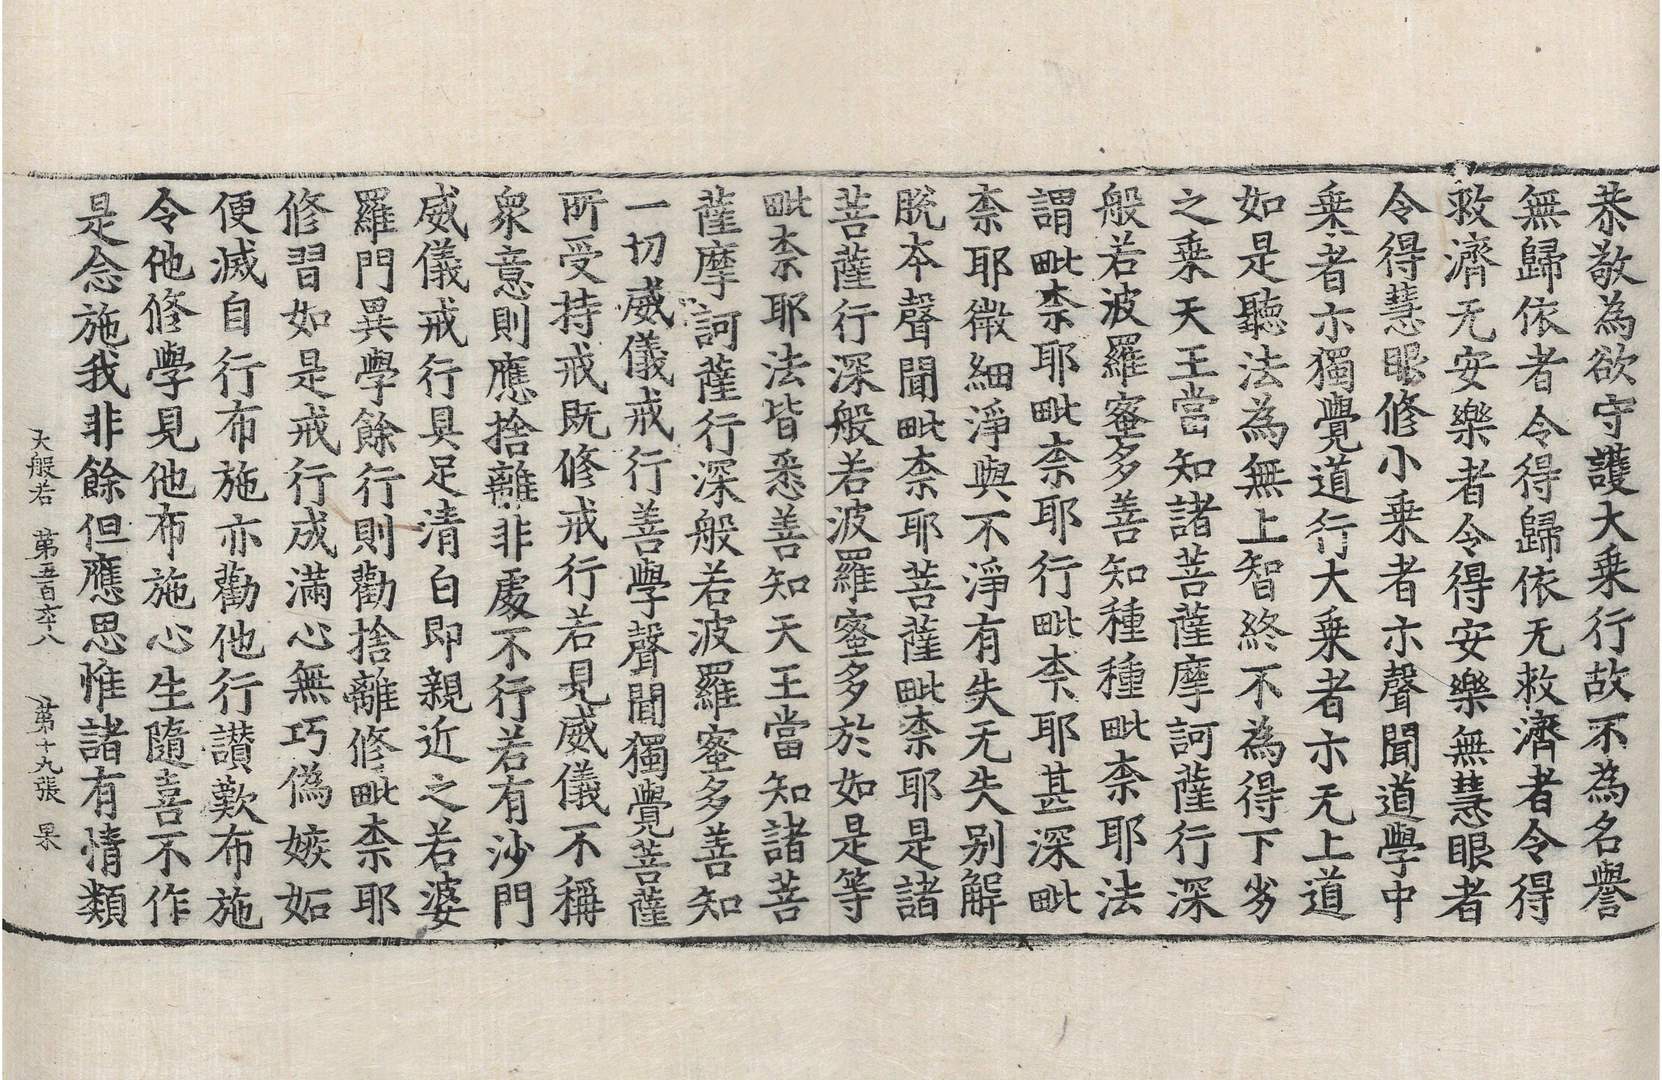 恭敬為欲守護大乗行故不為名譽
無歸依者令得歸依无救濟者令得
救濟无安樂者令得安樂無慧眼者
令得慧眼修小乗者示聲聞道學中
乗者示獨覺道行大乗者示无上道
如是聽法為無上智終不為得下劣
之乗天王當知諸菩薩摩訶薩行深
般若波羅蜜多善知種種毗柰耶法
謂毗柰耶毗柰耶行毗柰耶甚深毗
柰耶微細淨與不淨有失无失别解
脫本聲聞毗柰耶菩薩毗柰耶是諸
菩薩行深般若波羅蜜多於如是等
毗柰耶法皆悉善知天王當知諸菩
薩摩訶薩行深般若波羅蜜多善知
一切威儀戒行善學聲聞獨覺菩薩
所受持戒既修戒行若見威儀不稱
衆意則應捨離非處不行若有沙門
威儀戒行具足清白即親近之若婆
羅門異學餘行則勸捨離修毗柰耶
修習如是戒行成滿心無巧偽嫉妬
便滅自行布施亦勸他行讃歎布施
令他修學見他布施心生隨喜不作
是念施我非餘但應思惟諸有情類
大般若 第五百六十八 第十九張 杲